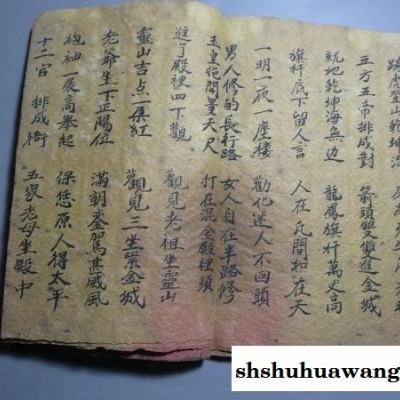 五方五帝排成對 箭頭雙雙進金城
統地乾坤海無边 龍鳳旗杆萬丈高
旗杆底下留人言 人在民間和在天
一明一夜一座楼 勸化迷人不回頭
男人修的長行路 女人自在半路修
玉皇 量天尺 打在混金 裡頭
進了殿裡四下觀 觀見老祖坐靈山
靈山吉点一朵紅 觀見三坐紫金城
老爺坐下正陽位 滿朝鑾駕甚威風
袍袖一展高舉起 保您原人得太平
十二官排成 五家老母坐殿中
shshuhuawang